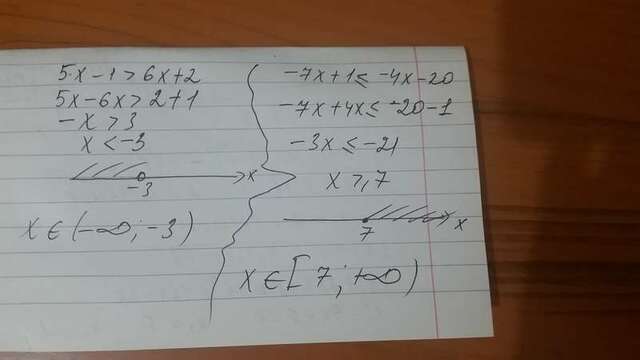 5x-1>6x+2
5x-6x>2+1
-x>3
x<-3
-3
x
x∈(-∞;-3)
-7x+1≤-4x-20
-7x+4x≤-20-1
-3x≤-21
x≥7
7
x
x∈[7;+∞)